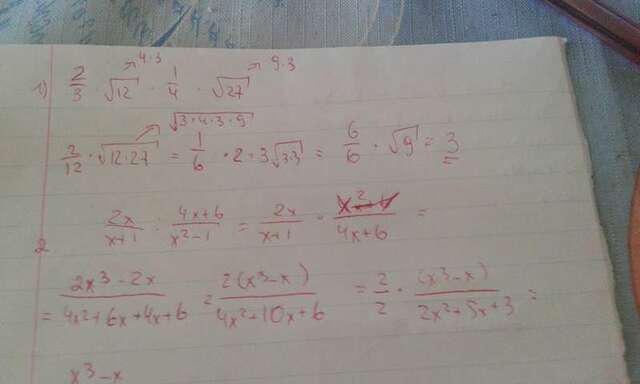 ↗4·3 ↗9·3
1) 2/3 √12 · 1/4 · √27
↗√3·4·3·9
2/12 · √12·27 = 1/6 · 2·3√3·3 = 6/6 · √9 = 3
2. 2x/x+1 : 4x+6/x²-1 = 2x/x+1 · x²-1/4x+6 =
= 2x³-2x/4x²+6x+4x+6 = 2(x³-x)/4x²+10x+6 = 2/2 · (x³-x)/2x²+5x+3 =
x³-x